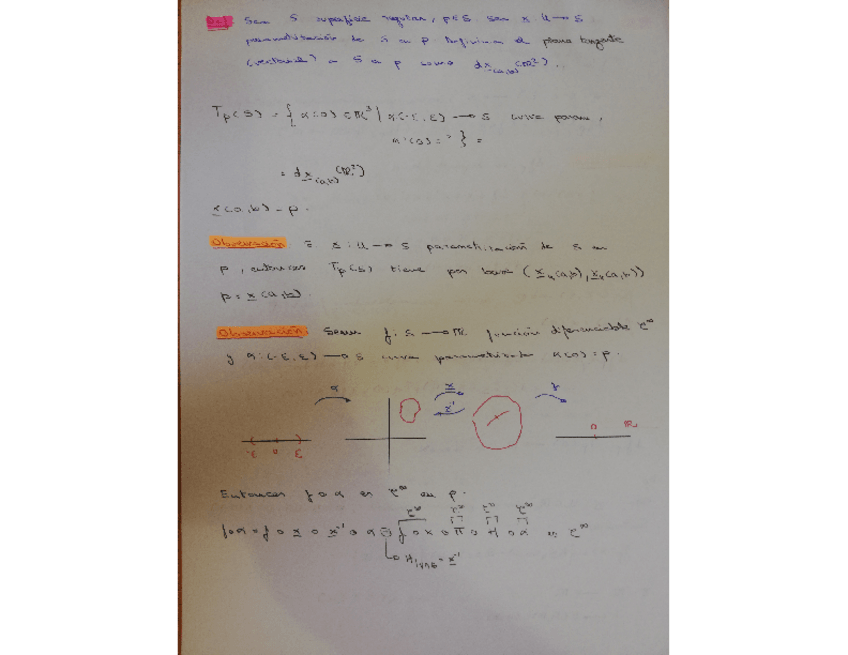 Def Sea S superficie regular, p∈S sea x: U → S
parametrización de S en p. Definimos el plano tangente
(vectorial) a S en p como dx(a,b)(ℝ²).
Tp(S) = { α'(0) ∈ ℝ³ | α(-ε, ε) → S curva param,
= dx(a,b)(ℝ²)
x(a,b) = p.
Observación: x: U → S parametrización de S en
p, entonces Tp(S) tiene por base (xu(a,b), xv(a,b))
p = x(a,b)
Observación: Sean f: S → ℝ función diferenciable C∞
y α: (-ε, ε) → S curva parametrizada α(0) = p.
α x f
x⁻¹
-ε 0 ε 0 ℝ
Entonces f∘α es C∞ en p.
C∞ C∞ C∞ C∞
f∘α = f∘x∘x⁻¹∘α = f∘x∘π∘H∘α es C∞
= x⁻¹